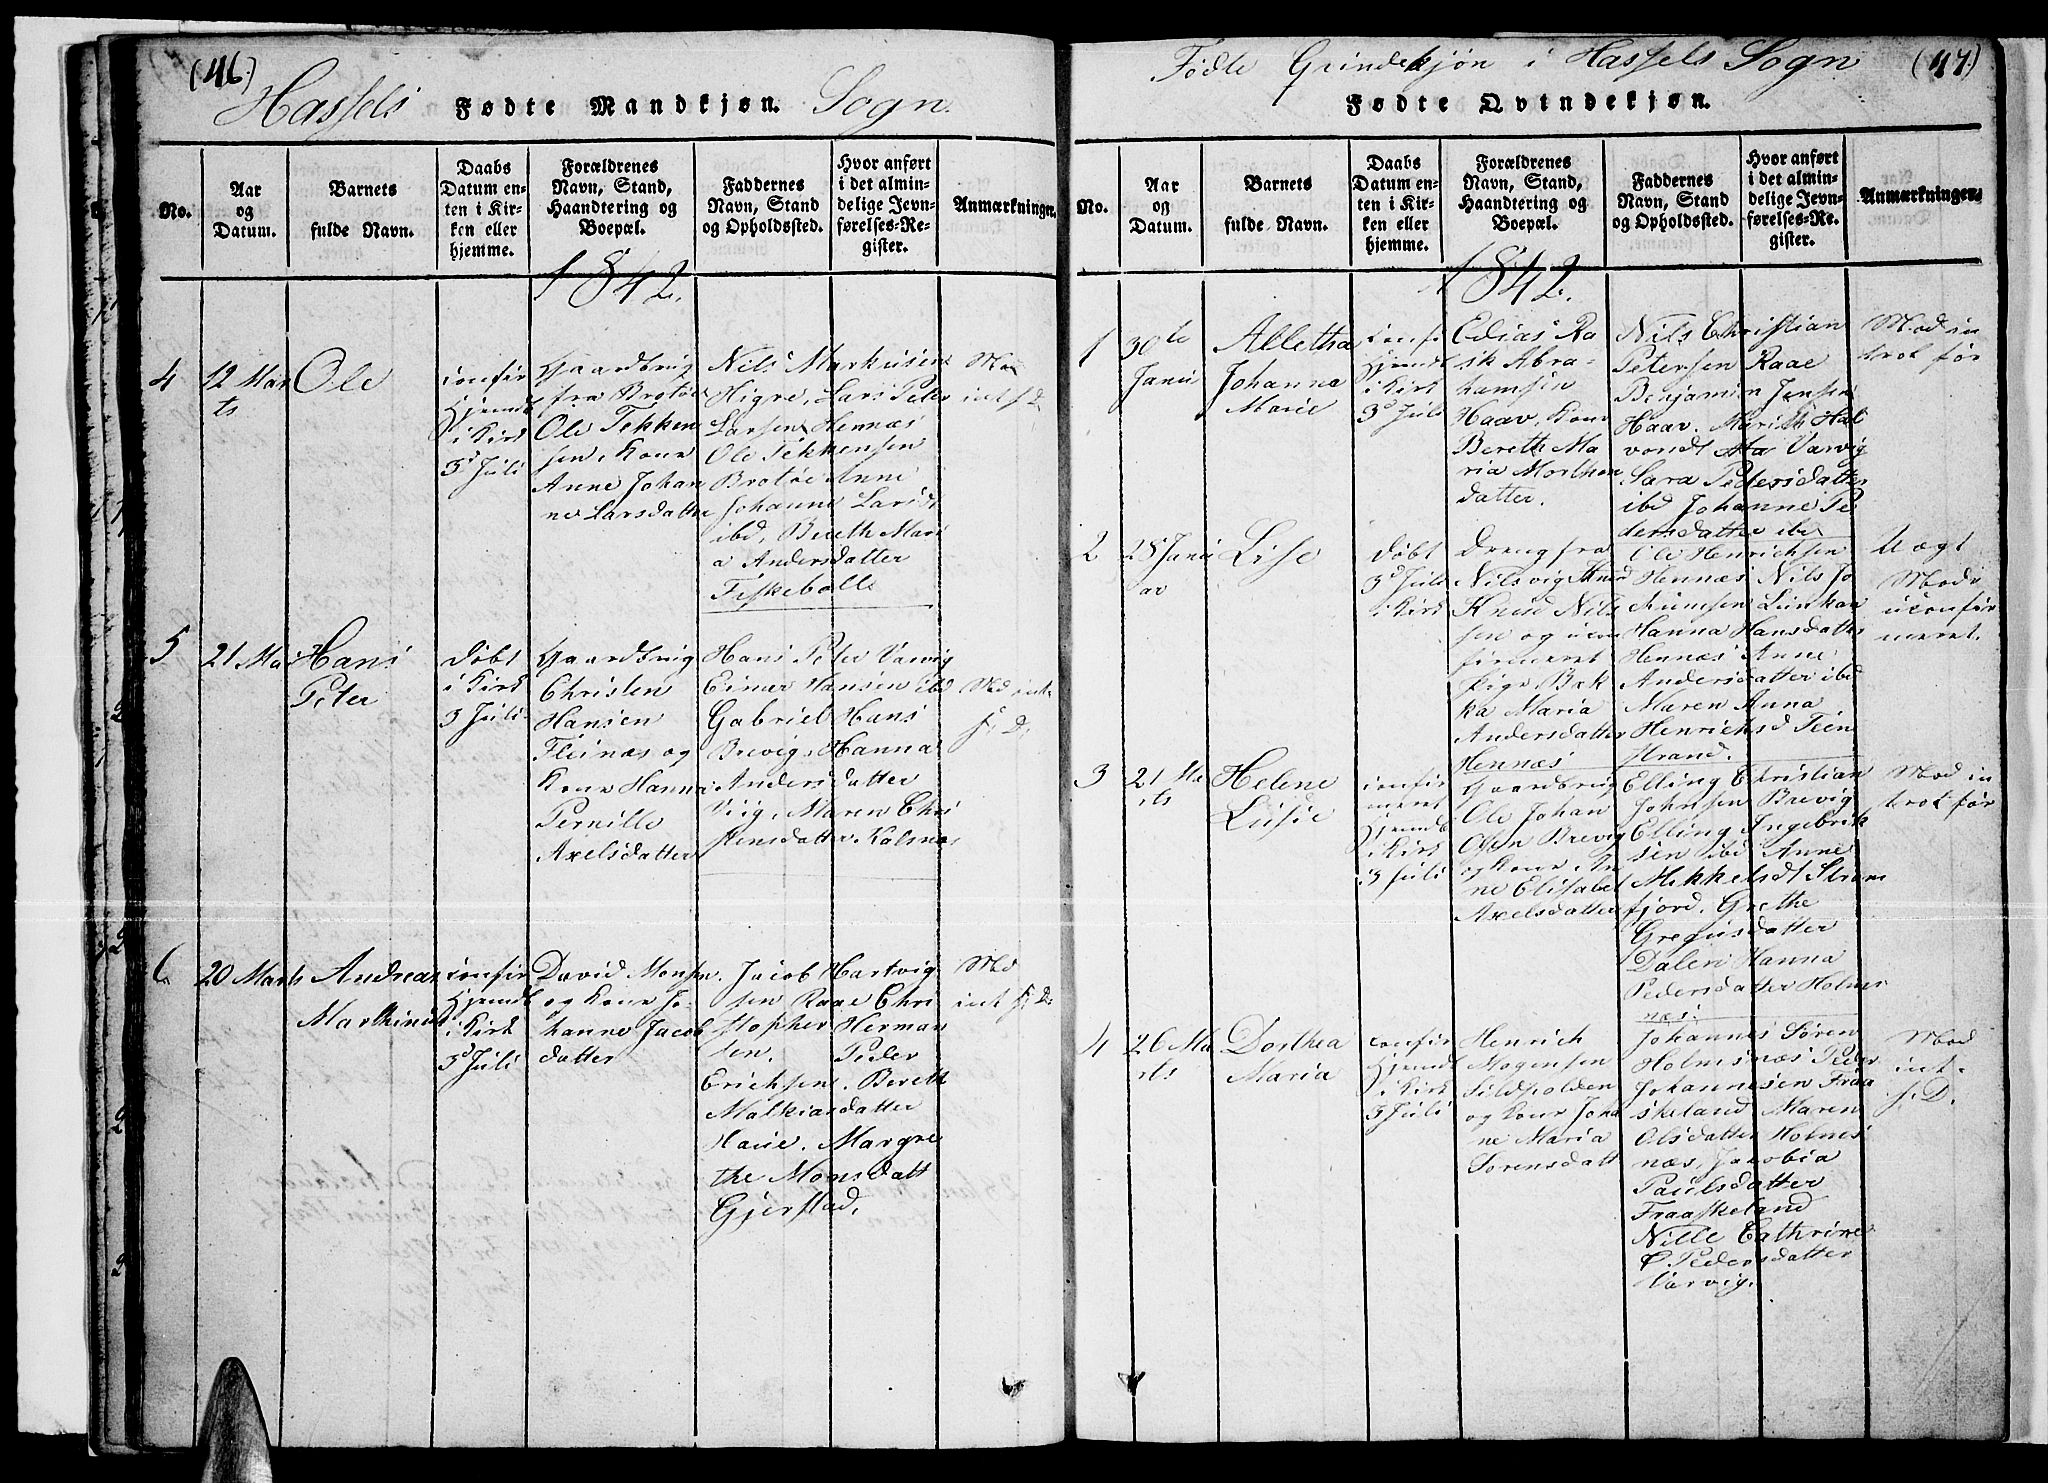 (46.)
Hassels Fødte Mandkjøn. Sogn.
No.
Aar
og
Datum.
Barnets
fulde Navn.
Daabs
Datum en-
ten i Kir-
ken eller
hjemme.
Forældrenes
Navn, Stand,
Haandtering og
Boepæl.
Faddernes
Navn, Stand
og Opholdssted.
Hvor anført
i det almin-
delige Jevn-
førelses-Re-
gister.
Anmærkninger.
1842.
4
12 Mar
ts
Ole
confir
Hjemdt
i Kirk
3d Juli
Gaardbrug
fra Brotøe
Ole Tekken
sen, Kone
Anne Johan
ne Larsdatter
Nils Markusen
Higre, Lars Peter
Larsen Hennæs
Ole Tekkensen
Brotøe Anne
Johanne Larsd.
ibd, Bereth Mari
a Andersdatter
Fiskebølle
int f. D.
5
21 Mar
Hans
Peter
døbt
i Kirk
3 Juli
Gaardbrug
Christen
Hansen
Fleinæs og
Kone Hanna
Pernille
Axelsdatter
Hans Peter Varvig
Einer Hansen ibd
Gabriel Hans
Brevig, Hanna
Andersdatter
Viig, Maren Chri
stensdatter Kalsnæs
Mod int.
f. D.
6
20 Marts
Andreas
Markinus
confir
Hjemdt
i Kirk
3d Juli
David Monsen
og Kone Jo-
hanne Jacob
datter
Jacob Hartvig
sen Raae Chri
stopher Herman
sen. Peder
Erichsen. Bereth
Malkiasdatter
Haue. Margre
the Monsdatt
Gjerstad.
Mod
int f. D.
Fødte Qvindekjøn i Hassels Sogn (47.)
Fødte Qvindekjøn.
No.
Aar
og
Datum.
Barnets
fulde Navn.
Daabs
Datum en-
ten i Kir-
ken eller
hjemme.
Forældrenes
Navn, Stand,
Haandtering og
Boepæl.
Faddernes
Navn, Stand
og Opholdssted.
Hvor anført
i det almin-
delige Jevn-
førelses-Re-
gister.
Anmærkninger.
1842.
1
30te
Janu
Alletha
Johanna
Marie
confi
Hjemdt
i Kirk
3d Juli
Edias Ra
sk Abra-
hamsen
Haav, Kone
Bereth Ma
ria Morthen
datter.
Nils Christian
Petersen Raae
Benjamin Jensen
Haav. Marith Hal
vondt Varvig
Sara Pedersdatter
ibd Johanne Pe
dersdatter ibd
Mod in
trot før
2
28 Janu
ar
Lise
døbt
3d Juli
i Kirk
Dreng fra
Nilsvig Strand
Knud Nils
sen og ucon
firmeret
Pige Bek
ka Maria
Andersdatter
Hennæs
Ole Henrichsen
Hennæs Nils Jo
Hanna Hansdatter
Hennæs Anne
Andersdatter ibd
Maren Anna
Henrichsd Tein
strand.
Uægt
Mod
uconfir
meret.
3
21 Ma
rts
Helene
Lusie
confir
meret
Hjemdt
i Kirk
3 Juli
Gaardbrug
Ole Johan
Olsen Brevig
og Kone An
ne Elisabet
Axelsdatter
Elling Christian
Johnsen Brevig
Elling Ingebrik
sen ibd Anne
Mikkelsdt Strøm
fjord. Grethe
Gregusdatter
Dalen Hanna
Pedersdatter Holms
næs.
Mod in
trot før
4
26 Ma
rts
Dorthea
Maria
confir
Hjemdt
i Kirk
3 Juli
Henrich
Mogensen
Sildpolden
og Kone Joha
ne Maria
Sørensdatt
Johannes Søren
Holmsnæs Peder
Johannesen Fraa
skeland Maren
Olsdatter Holms
næs, Jacobia
Paulsdatter
Fraaskeland
Nille Cathrine
Pedersdatter
Varvig.
Mod
int.
f. D.